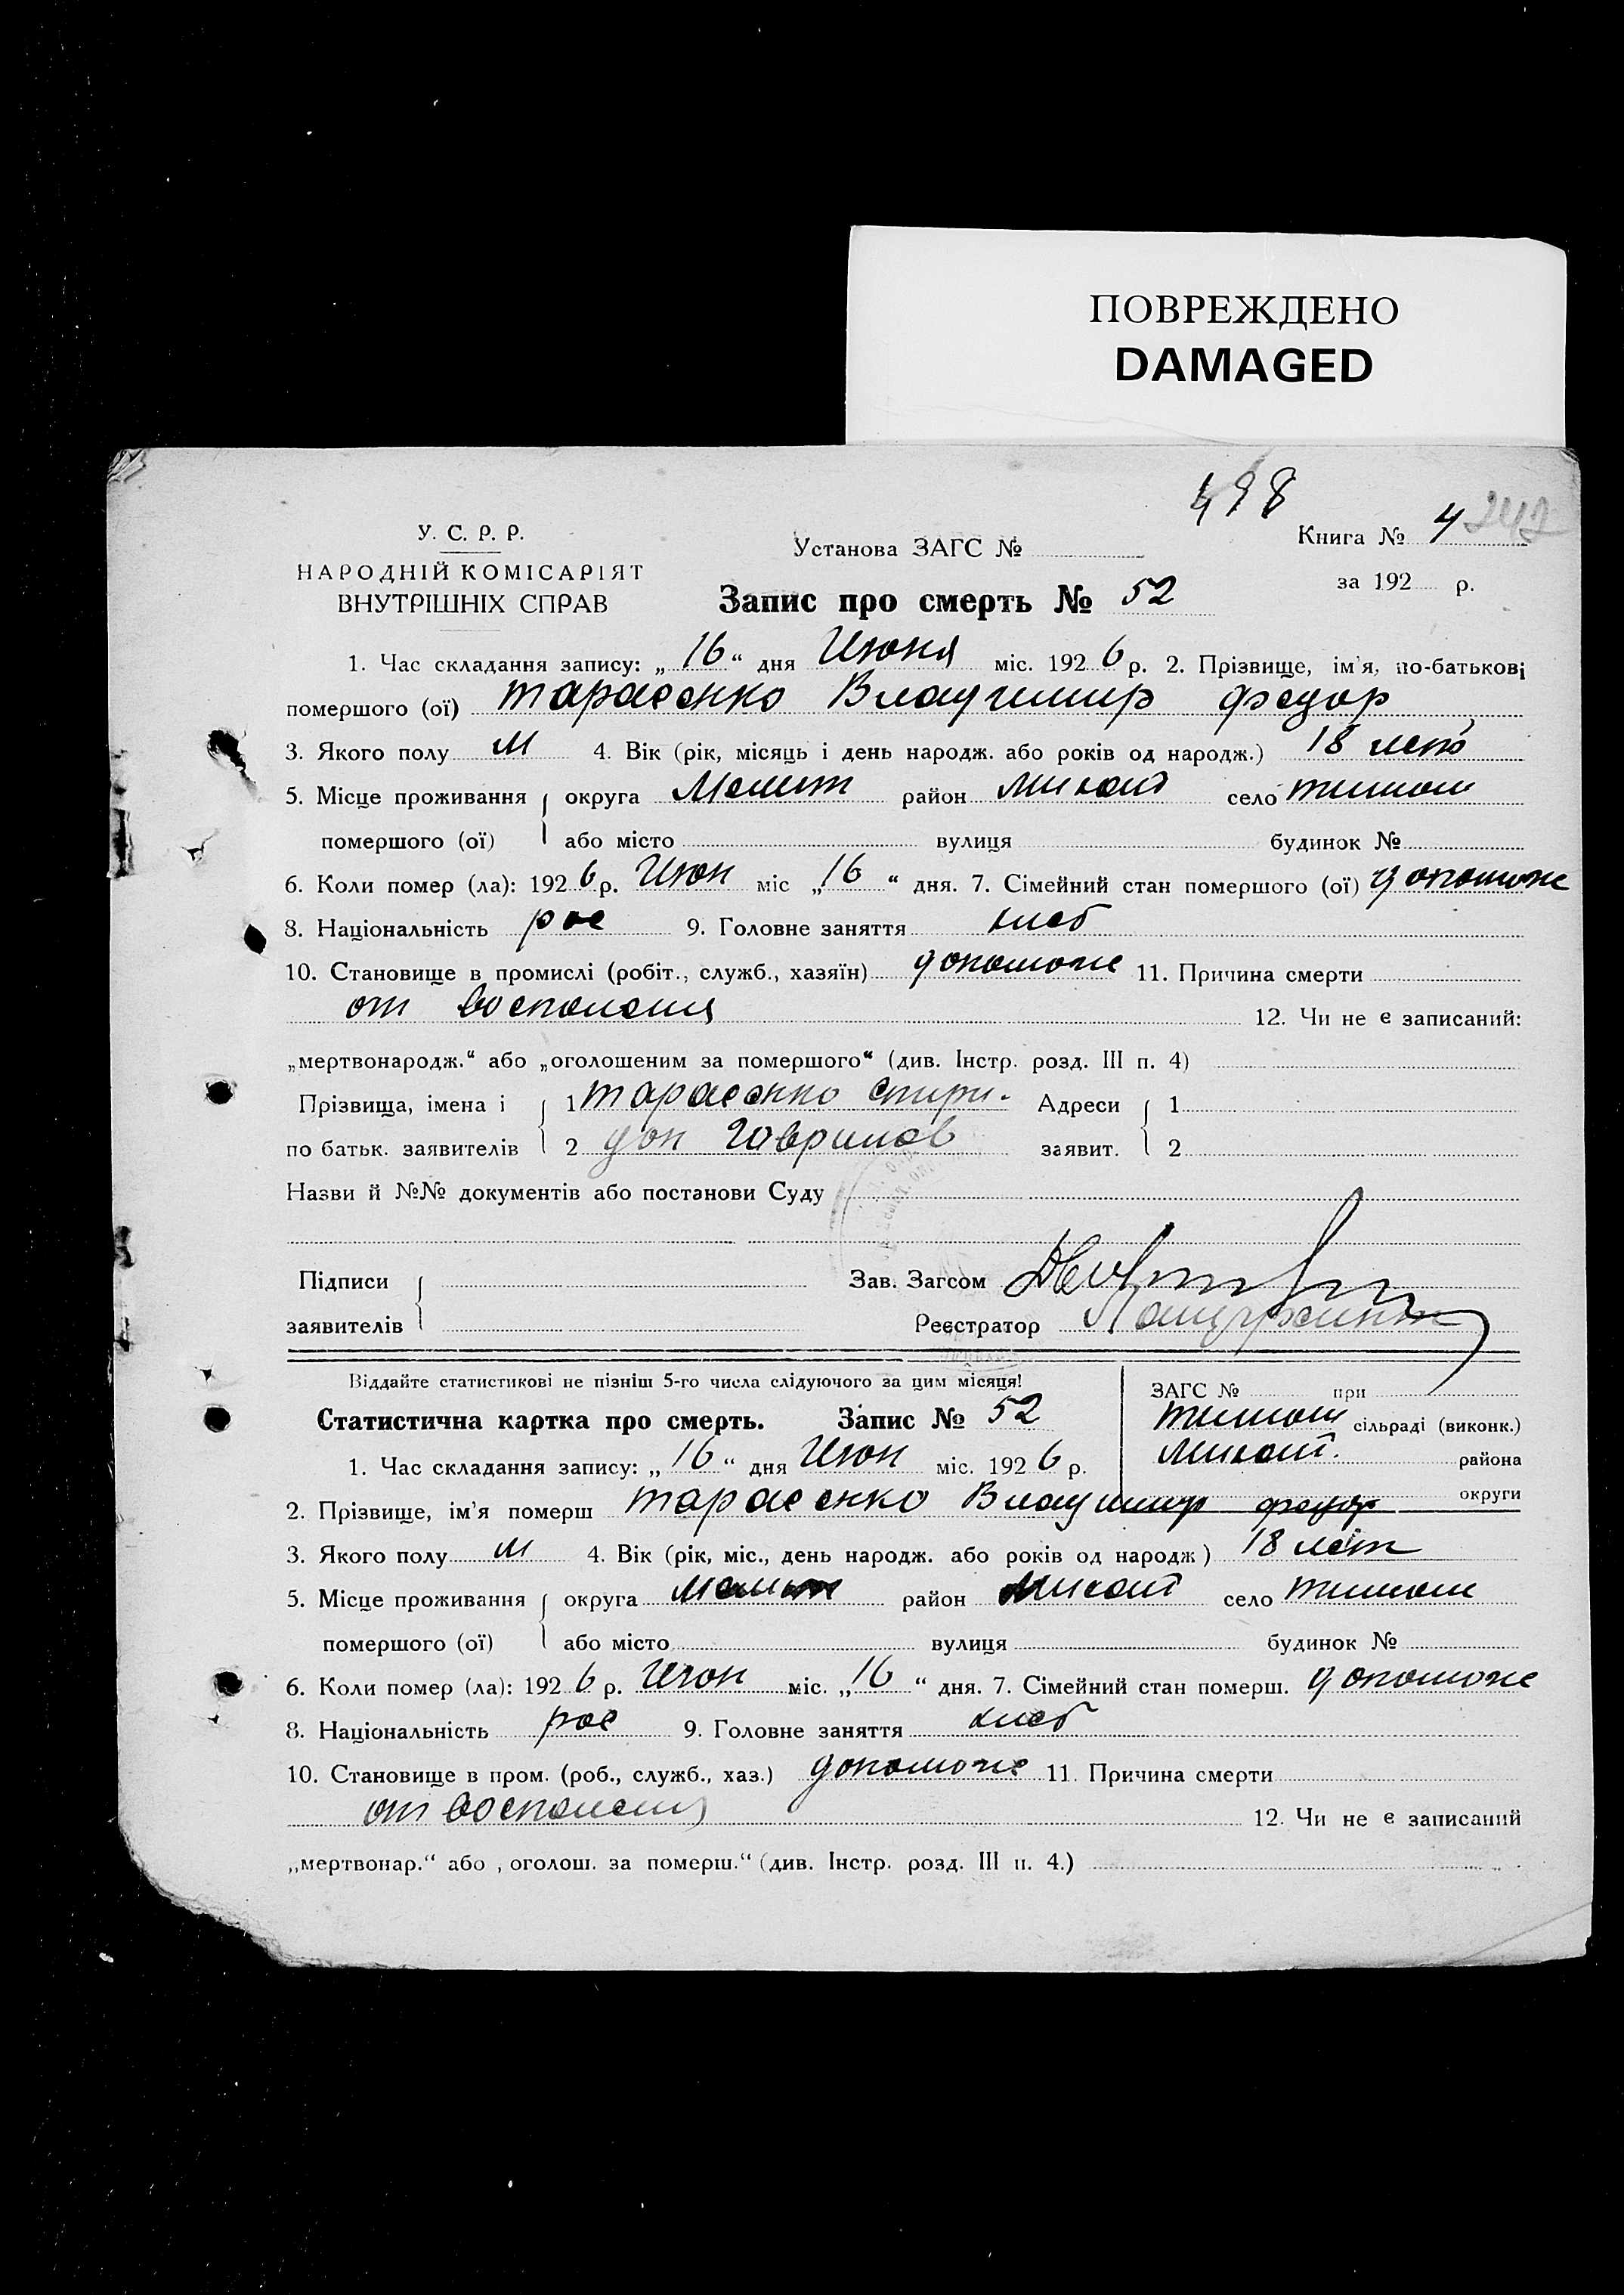 ПОВРЕЖДЕНО
DAMAGED
498
У. С. Р. Р.
НАРОДНІЙ КОМІСАРІЯТ
ВНУТРІШНІХ СПРАВ
Установа ЗАГС №
Книга № 4 242
за 192 р.
Запис про смерть № 52
1. Час складання запису: „16“ дня Июня міс. 1926 р. 2. Прізвище, ім'я, по-батькові
помершого (ої) тарасенко Владимир федор
3. Якого полу м 4. Вік (рік, місяць і день народж. або років од народж.) 18 лет
5. Місце проживання округа Мелит район село
помершого (ої) або місто вулиця будинок №
6. Коли помер (ла): 1926 р. Июн міс „16“ дня. 7. Сімейний стан помершого (ої) допомож
8. Національність рос 9. Головне заняття хлеб
10. Становище в промислі (робіт., служб., хазяїн) допомож 11. Причина смерти
от воспаления 12. Чи не є записаний:
„мертвонародж.“ або „оголошеним за помершого“ (див. Інстр. розд. III п. 4)
Прізвища, імена і 1 тарасенко спири- Адреси 1
по батьк. заявителів 2 дон Гаврилов заявит. 2
Назви й №№ документів або постанови Суду
Підписи Зав. Загсом
заявителів Реєстратор
Віддайте статистикові не пізніш 5-го числа слідуючого за цим місяця!
ЗАГС № при
Статистична картка про смерть. Запис № 52
сільраді (виконк.)
1. Час складання запису: „16“ дня Июн міс. 1926 р.
района
округи
2. Прізвище, ім'я померш тарасенко Владимир федор
3. Якого полу м 4. Вік (рік, міс., день народж. або років од народж) 18 лет
5. Місце проживання округа Мелит район село
помершого (ої) або місто вулиця будинок №
6. Коли помер (ла): 1926 р. Июн міс. „16“ дня. 7. Сімейний стан померш. допомож
8. Національність рос 9. Головне заняття хлеб
10. Становище в пром. (роб., служб., хаз.) допомож 11. Причина смерти
от воспаления 12. Чи не є записаний
„мертвонар.“ або „оголош. за померш.“ (див. Інстр. розд. III п. 4.)